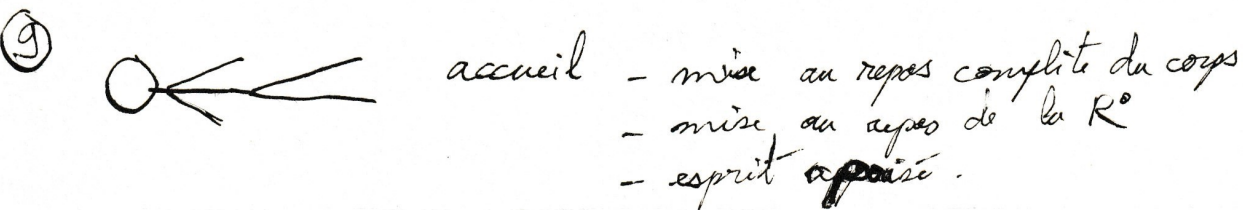 9 accueil - mise au repos complète du corps
- mise au repos de la R°
- esprit apaisé.